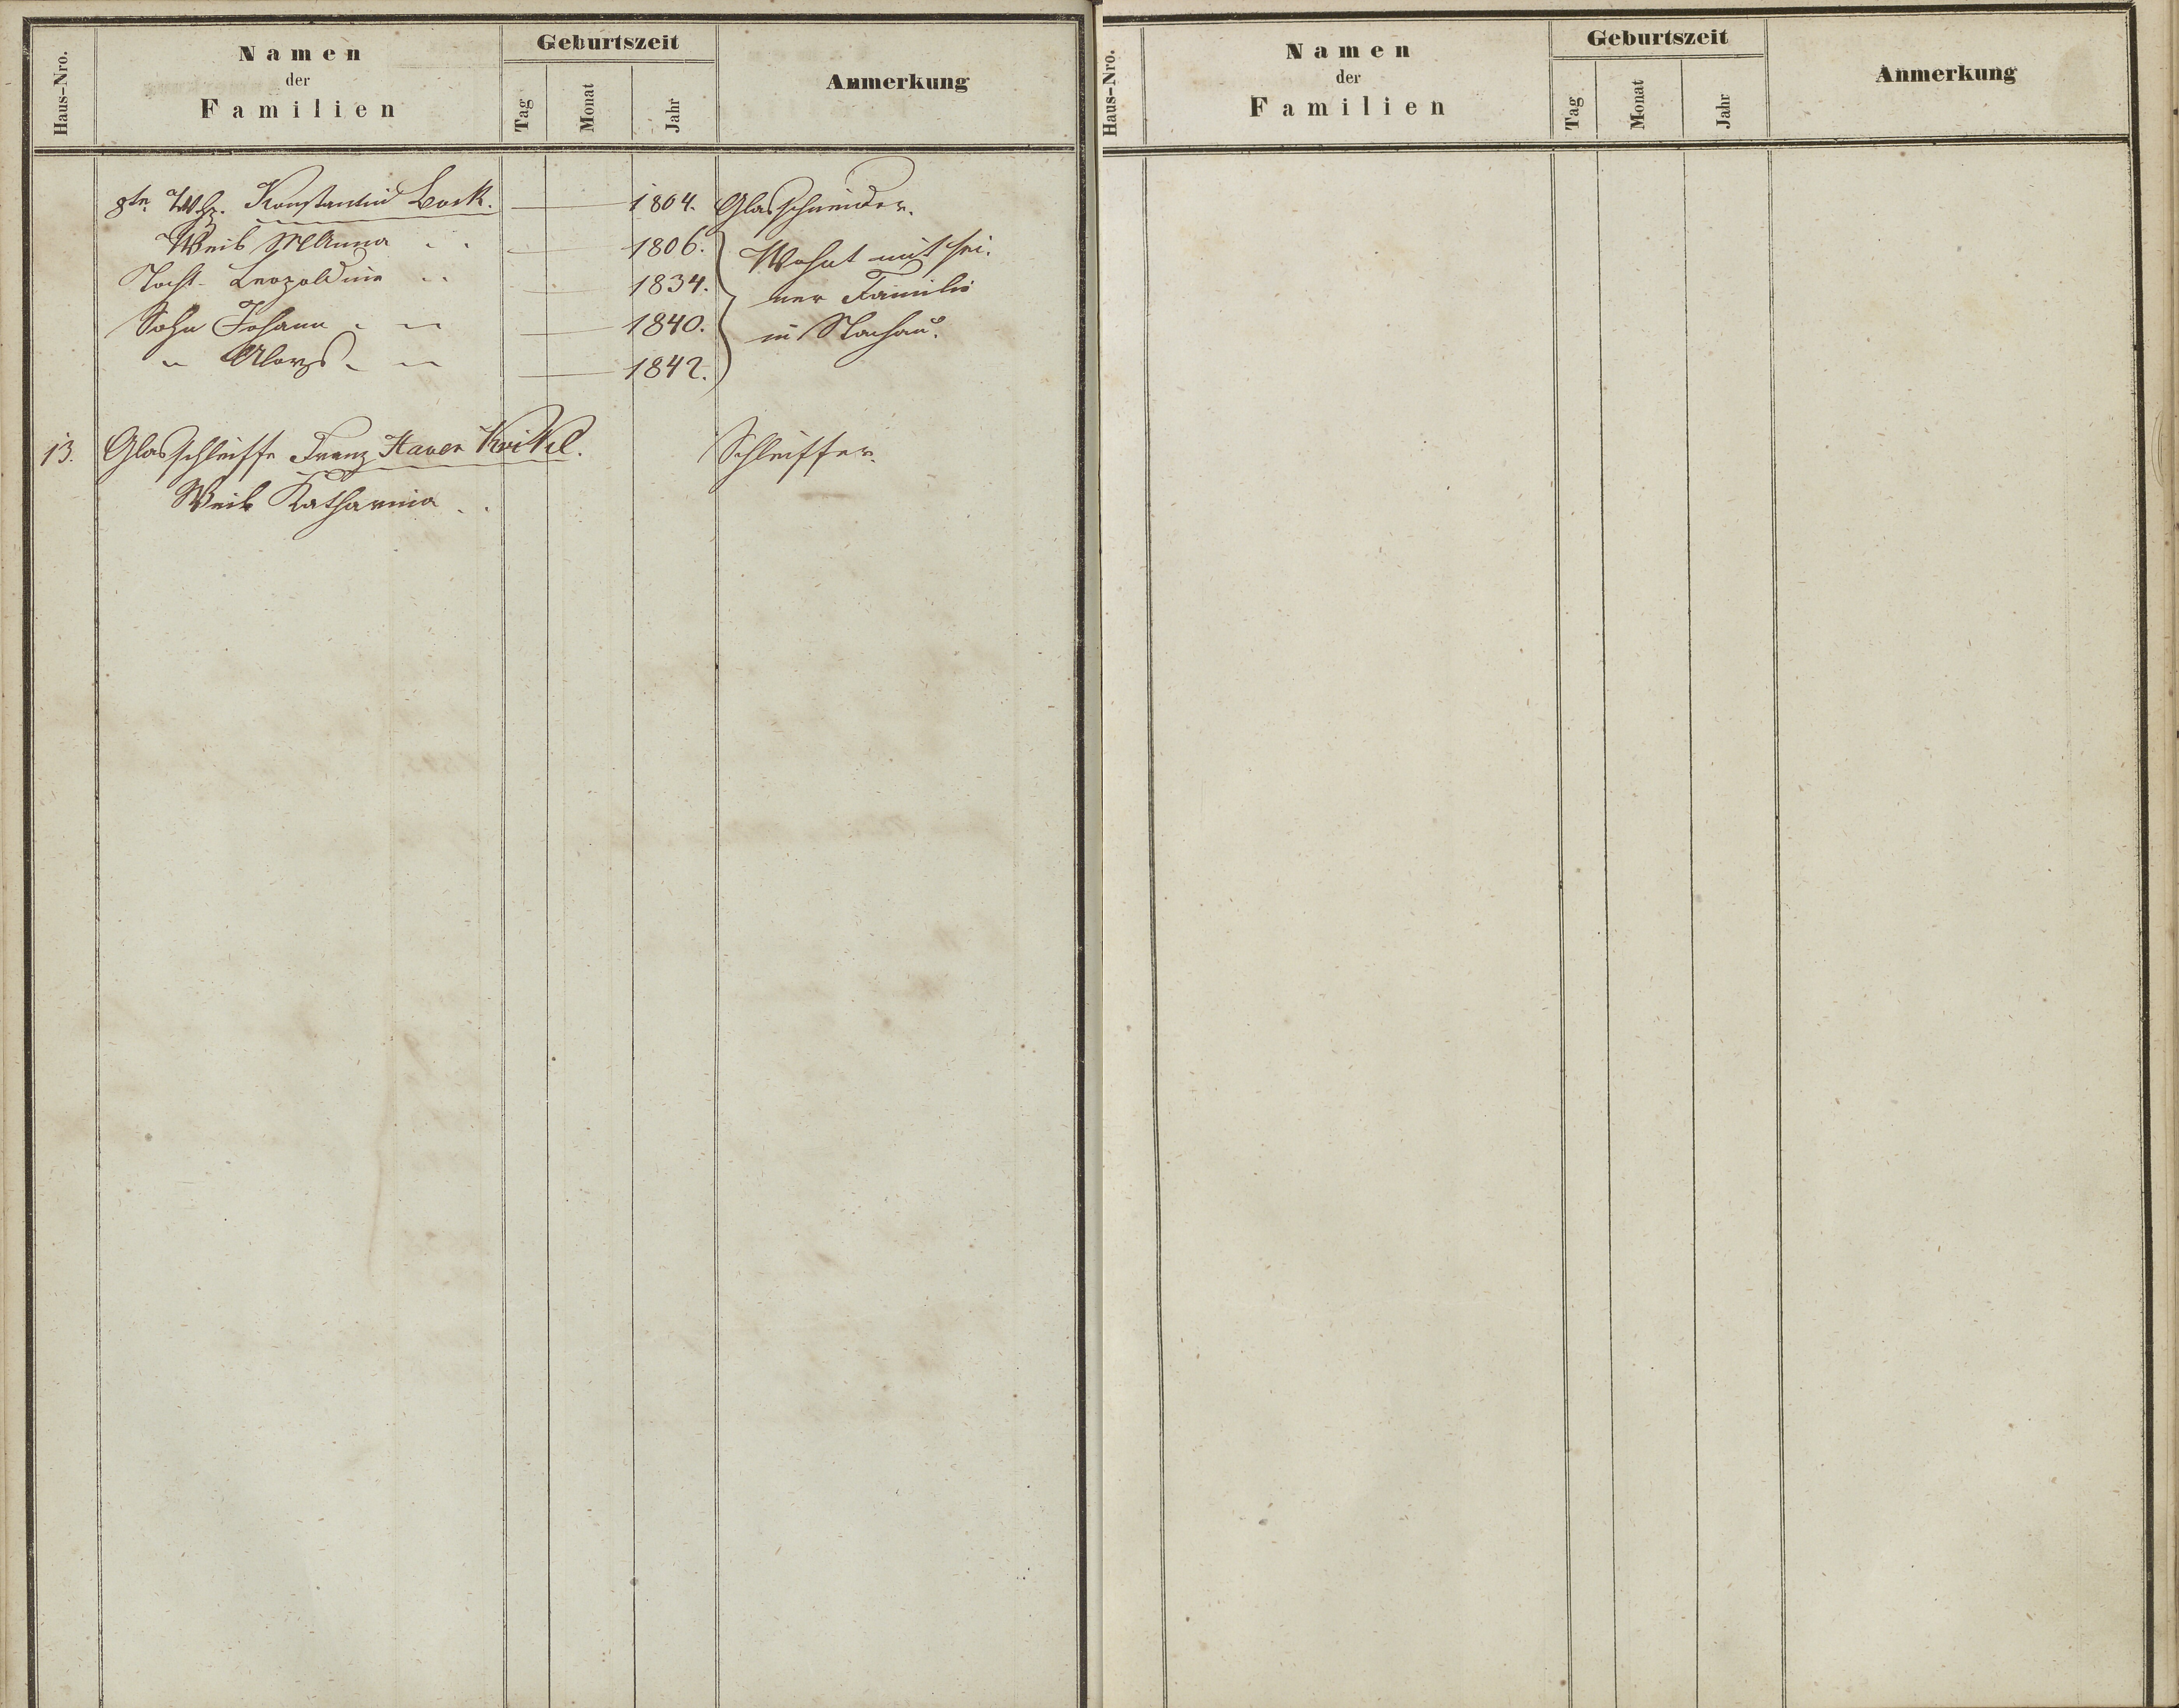 Haus-Nro.
Namen
der
Familien
Geburtszeit
Tag
Monat
Jahr
Anmerkung
8te Konstantin Bock. 1804. Glasschneider.
Weib MAnna " " 1806. Wohnt mit sei-
Tocht. Leopoldine " " 1834. ner Familie
Sohn Johann " " 1840. in Stachau.
" Aloys " " 1842.
13. Glasschleiffe Franz Xaver Schleiffer.
Weib Katharina " "
Haus-Nro.
Namen
der
Familien
Geburtszeit
Tag
Monat
Jahr
Anmerkung